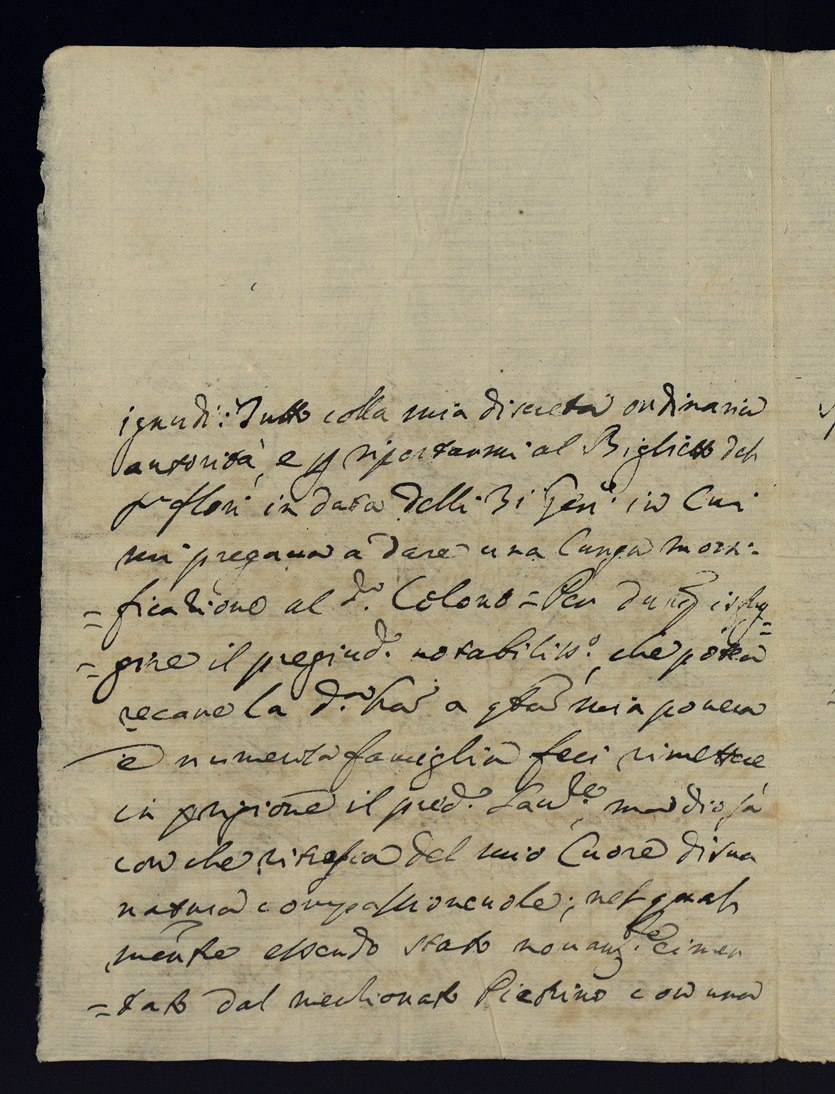 ignudi: Tutto colla mia discreta ordinaria
autorità, e p riportarmi al Biglietto del
Sr flori in data delli 31 Gen.º in Cui
mi pregava a dare una lunga morti-
=ficazione al do. Colono = Per du isfug
=gire il pregiud.º notabiliss.º, che potea
recare la d.a a qta mia povera
e numerosa famiglia feci rimettere
in prigione il pred.º ma dio sà
con che ritrosia del mio Cuore di sua
natura compassionevole; nel qual
mente essendo stato novam.te cimen
=tato dal menzionato Pietrino con una